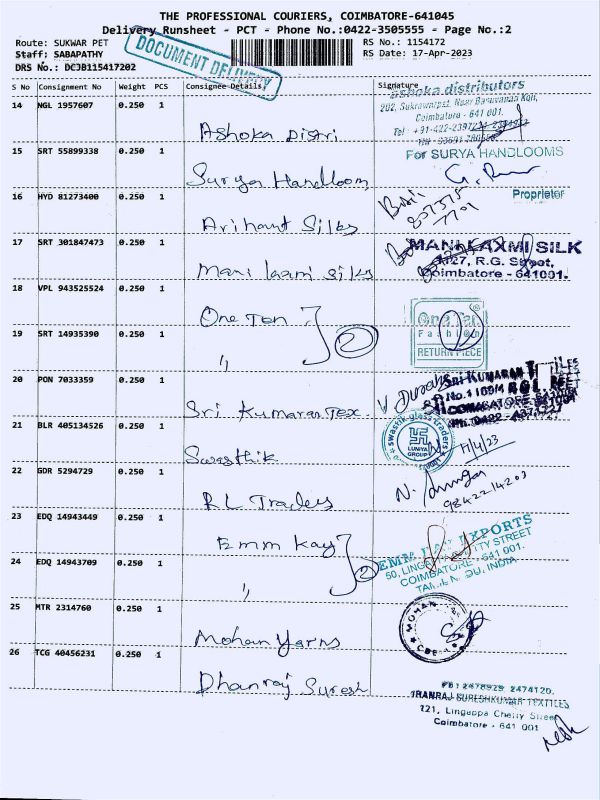 THE PROFESSIONAL COURIERS, COIMBATORE-641045
Delivery Runsheet - PCT - Phone No.:0422-3505555 - Page No.:2
Route: SUKWAR PET
RS No.: 1154172
Staff: SABAPATHY
RS Date: 17-Apr-2023
DRS No.: DCJB115417202
DOCUMENT DELIVERY
S No Consignment No Weight PCS Consignee Details Signature
14 NGL 1957607 0.250 1
Ashoka Distri
ashoka distributors
Coimbatore - 641 001.
15 SRT 55899338 0.250 1
Surya Handloom
For SURYA HANDLOOMS
Proprietor
16 HYD 81273400 0.250 1
Arihant Silks
17 SRT 301847473 0.250 1
Mani laxmi silks
MANI LAXMI SILK
R.G. Street,
Coimbatore - 641001.
18 VPL 943525524 0.250 1
One Ten
2
One Ten
Fashion
RETURN PIECE
19 SRT 14935390 0.250 1
"
20 PON 7033359 0.250 1
Sri Kumaran Tex.
SRI KUMARAN
COIMBATORE
21 BLR 405134526 0.250 1
Swasthik
swastik glass traders
LUNIYA
GROUP
17/4/23
22 GDR 5294729 0.250 1
RL Traders
9842214203
23 EDQ 14943449 0.250 1
Emm Kay
2
EXPORTS
CITY STREET
COIMBATORE - 641 001.
INDIA
24 EDQ 14943709 0.250 1
"
25 MTR 2314760 0.250 1
Mohan Yarns
MOHAN
CBE
26 TCG 40456231 0.250 1
Dhanraj Suresh
2478929, 2474120,
DHANRAJ SURESHKUMAR TEXTILES
121, Lingappa Chetty Street
Coimbatore - 641 001